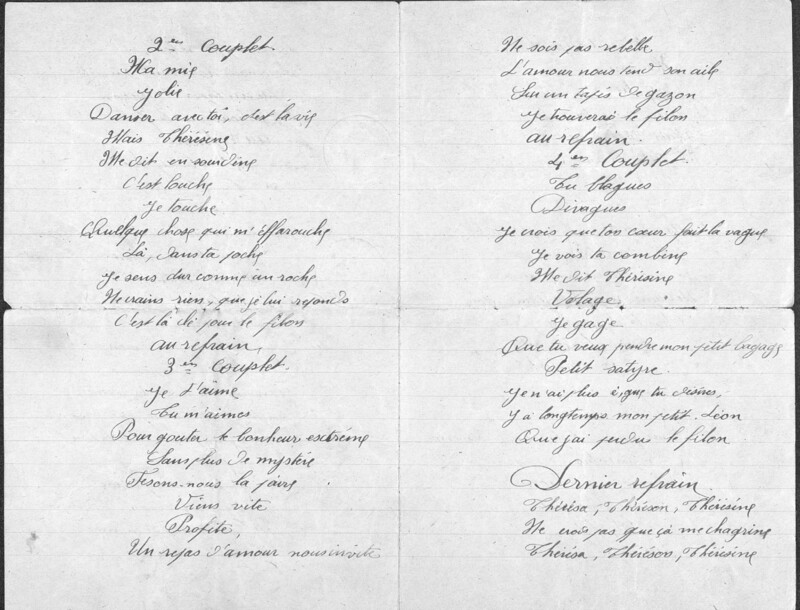 2ème Couplet.
Ma mie
Jolie
Danser avec toi, c'est la vie
Mais Thérésine
Me dit en sourdine
C'est louche
Je touche
Quelque chose qui m'effarouche
Là, dans ta poche
Je sens dur comme un roche
Ne crains rien, que je lui reponds
C'est là clé pour le filon
au refrain.
3ème Couplet.
Je t'aime
Tu m'aimes
Pour gouter le bonheur extrême
Sans plus de mystère
Fesons-nous la paire
Viens vite
Profite,
Un repas d'amour nous invite
Ne sois pas rebelle
L'amour nous tend son aile
Sur un tapis de gazon
Je trouverai le filon
au refrain.
4ème Couplet.
Tu blagues
Divagues
Je crois que ton cœur fait la vague
Je vois ta combine
Me dit Thérésine
Volage
Je gage
Que tu veux prendre mon petit bagage
Petit satyre
Je n'ai plus que tu désires,
Y a longtemps mon petit Léon
Que j'ai perdu le filon
Dernier refrain
Thérésa, Théréson, Thérésine
Ne crois pas que çà me chagrine
Thérésa, Théréson, Thérésine